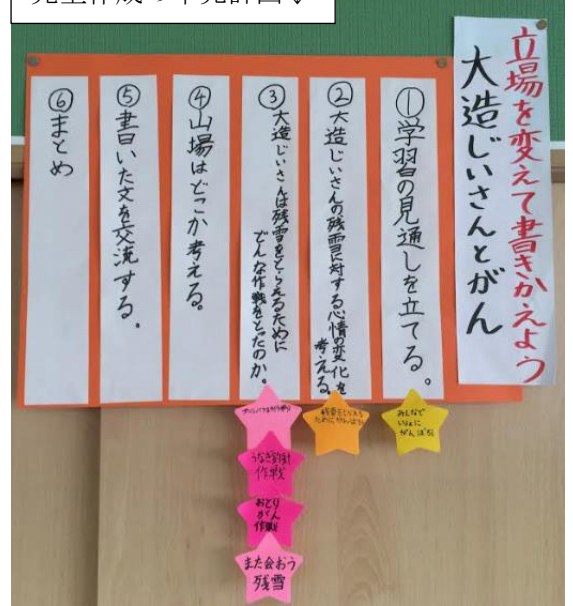 立場を変えて書きかえよう
大造じいさんとがん
①学習の見通しを立てる。
②大造じいさんの残雪に対する心情の変化を
考える。
③大造じいさんは残雪をとらえるために
どんな作戦をとったのか。
④山場はどこか考える。
⑤書いた文を交流する。
⑥まとめ
みんなで
いっしょに
がんばろう
うなぎ釣針
作戦
おとり
がん
作戦
また会おう
残雪